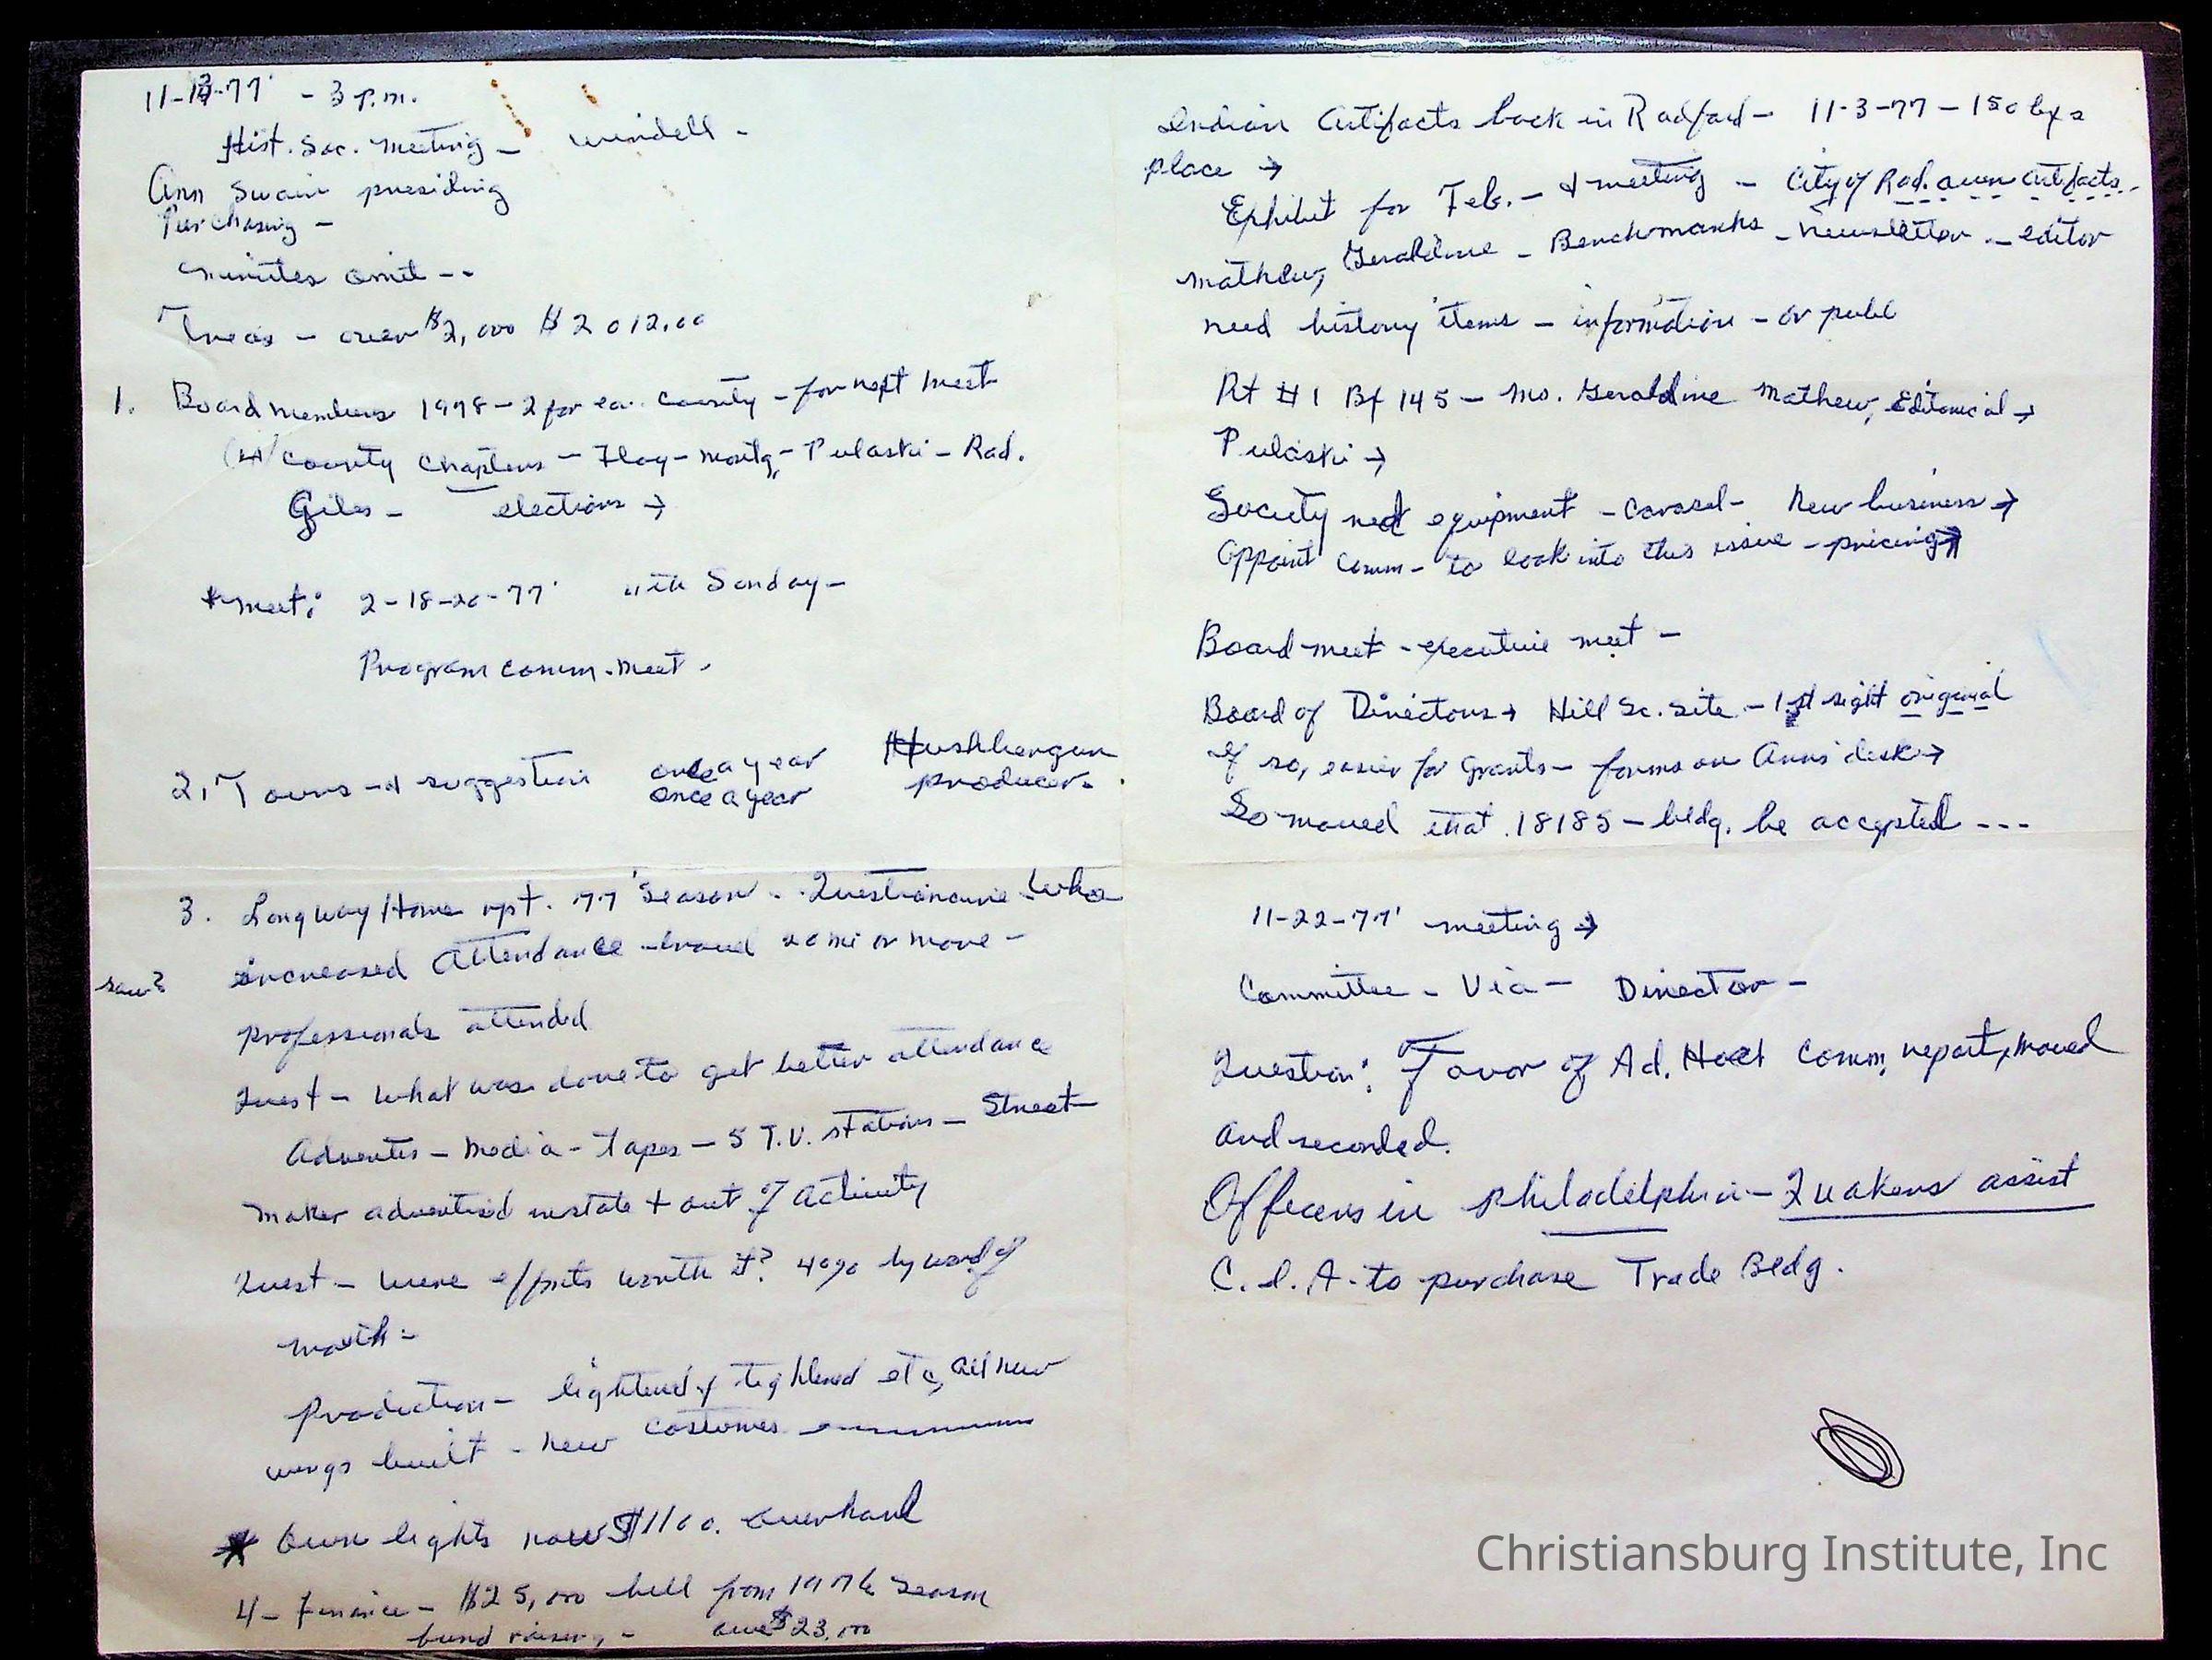 11-13-77' - 3 P.m.
Hist. Soc. Meeting - Wendell -
Ann Swain presiding
Purchasing -
minutes omit --
Treas - over $2,000 $2012.00
1. Board members 1978 - 2 for ea. County - for next meet
(4) County Chapters - Floy - Montg, - Pulaski - Rad.
Giles - elections →
* meet: 2-18-20-77' Sunday -
Program comm. meet.
2. Tours → suggestion once a year
once a year
producer.
3. Long Way Home rpt. 77' Season - Questionaire Who
saw? increased Attendance - travel 20 mi or more -
Professionals attended
Quest - What was done to get better attendance
Advertis - Media - Tapes - 5 T.V. stations - Street
Maker advertised instate + out of activity
Quest - were efforts worth it? 40% by word of
mouth -
Production - lightened & tightened etc, all new
wings built - new costumes
* Own lights now $1100. overhaul
4 - Finance - $25,000 bill from 1976 season
fund raising - owe $23,000
Indian Artifacts back in Radford - 11-3-77 - 150
place →
Exhibit for Feb. - & meeting - City of Rad. own artifacts.
Mathew, Geraldine - Benchmarks - Newsletter - editor
need history items - information - or publ
Rt #1 Bx 145 - Ms. Geraldine Mathew, Editorical →
Pulaski →
Society need equipment - Carosel - New business →
Appoint Comm - to look into this issue - pricing →
Board meet - executive meet -
Board of Directors → Hill Sc. Site - 1st right original
If so, easier for Grants - forms on Anns' desk →
So moved that 18185 - bldg. be accepted ---
11-22-77' meeting →
Committee - Via - Director -
Question: Favor of Ad. Hoct Comm, report, moved
and recorded.
Officers in Philadelphia - Quakers assist
C. I. A. to purchase Trade Bldg.
Christiansburg Institute, Inc